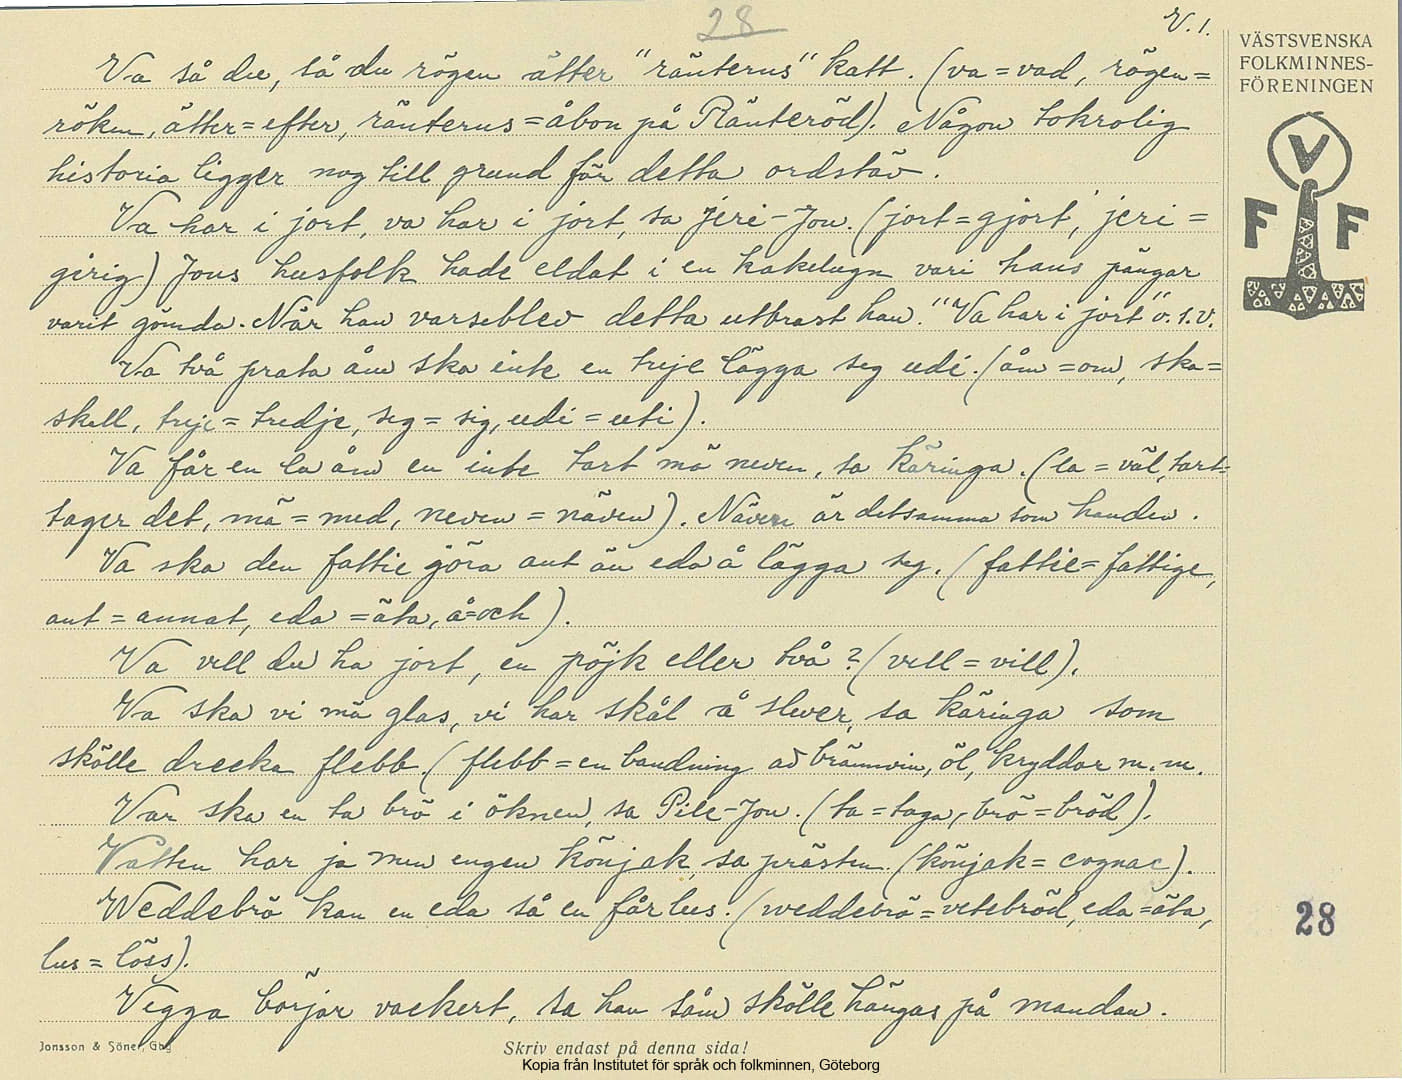 28
V. 1.
VÄSTSVENSKA
FOLKMINNES-
FÖRENINGEN
V
F F
Va så du, så du rögen ätter "ränterus" katt. (va = vad, rögen =
röken, ätter = efter, ränterus = åbon på Ränteröd). Någon tokrolig
historia ligger nog till grund för detta ordstäv.
Va har i jort, va har i jort, sa jeri-Jon. (jort = gjort, jeri =
girig) Jons husfolk hade eldat i en kakelugn vari hans pängar
varit gömda. När han varseblev detta utbrast han. "Va har i jort" o.s.v.
Va två prata åm ska inte en trije lägga seg udi. (åm = om, ska =
skall, trije = tredje, seg = sig, udi = uti).
Va får en la åm en inte tart mä neven, sa käringa. (la = väl, tart =
tager det, mä = med, neven = näven). Näven är detsamma som handen.
Va ska den fattie göra ant än eda å lägga seg. (fattie = fattige,
ant = annat, eda = äta, å = och).
Va vell du ha jort, en pöjk eller två? (vell = vill).
Va ska vi mä glas, vi har skål å slever, sa käringa som
skölle drecka flebb. (flebb = en blandning av brännvin, öl, kryddor m.m.
Var ska en ta brö i öknen, sa Pile-Jon. (ta = taga, brö = bröd).
Vatten har ja men engen könjak, sa prästen. (könjak = cognac).
Weddebrö kan en eda så en får lus. (weddebrö = vetebröd, eda = äta,
lus = löss).
Vegga börjar vackert, sa han såm skölle hängas på mandan.
28
Jonsson & Söner, Gbg
Skriv endast på denna sida!
Kopia från Institutet för språk och folkminnen, Göteborg